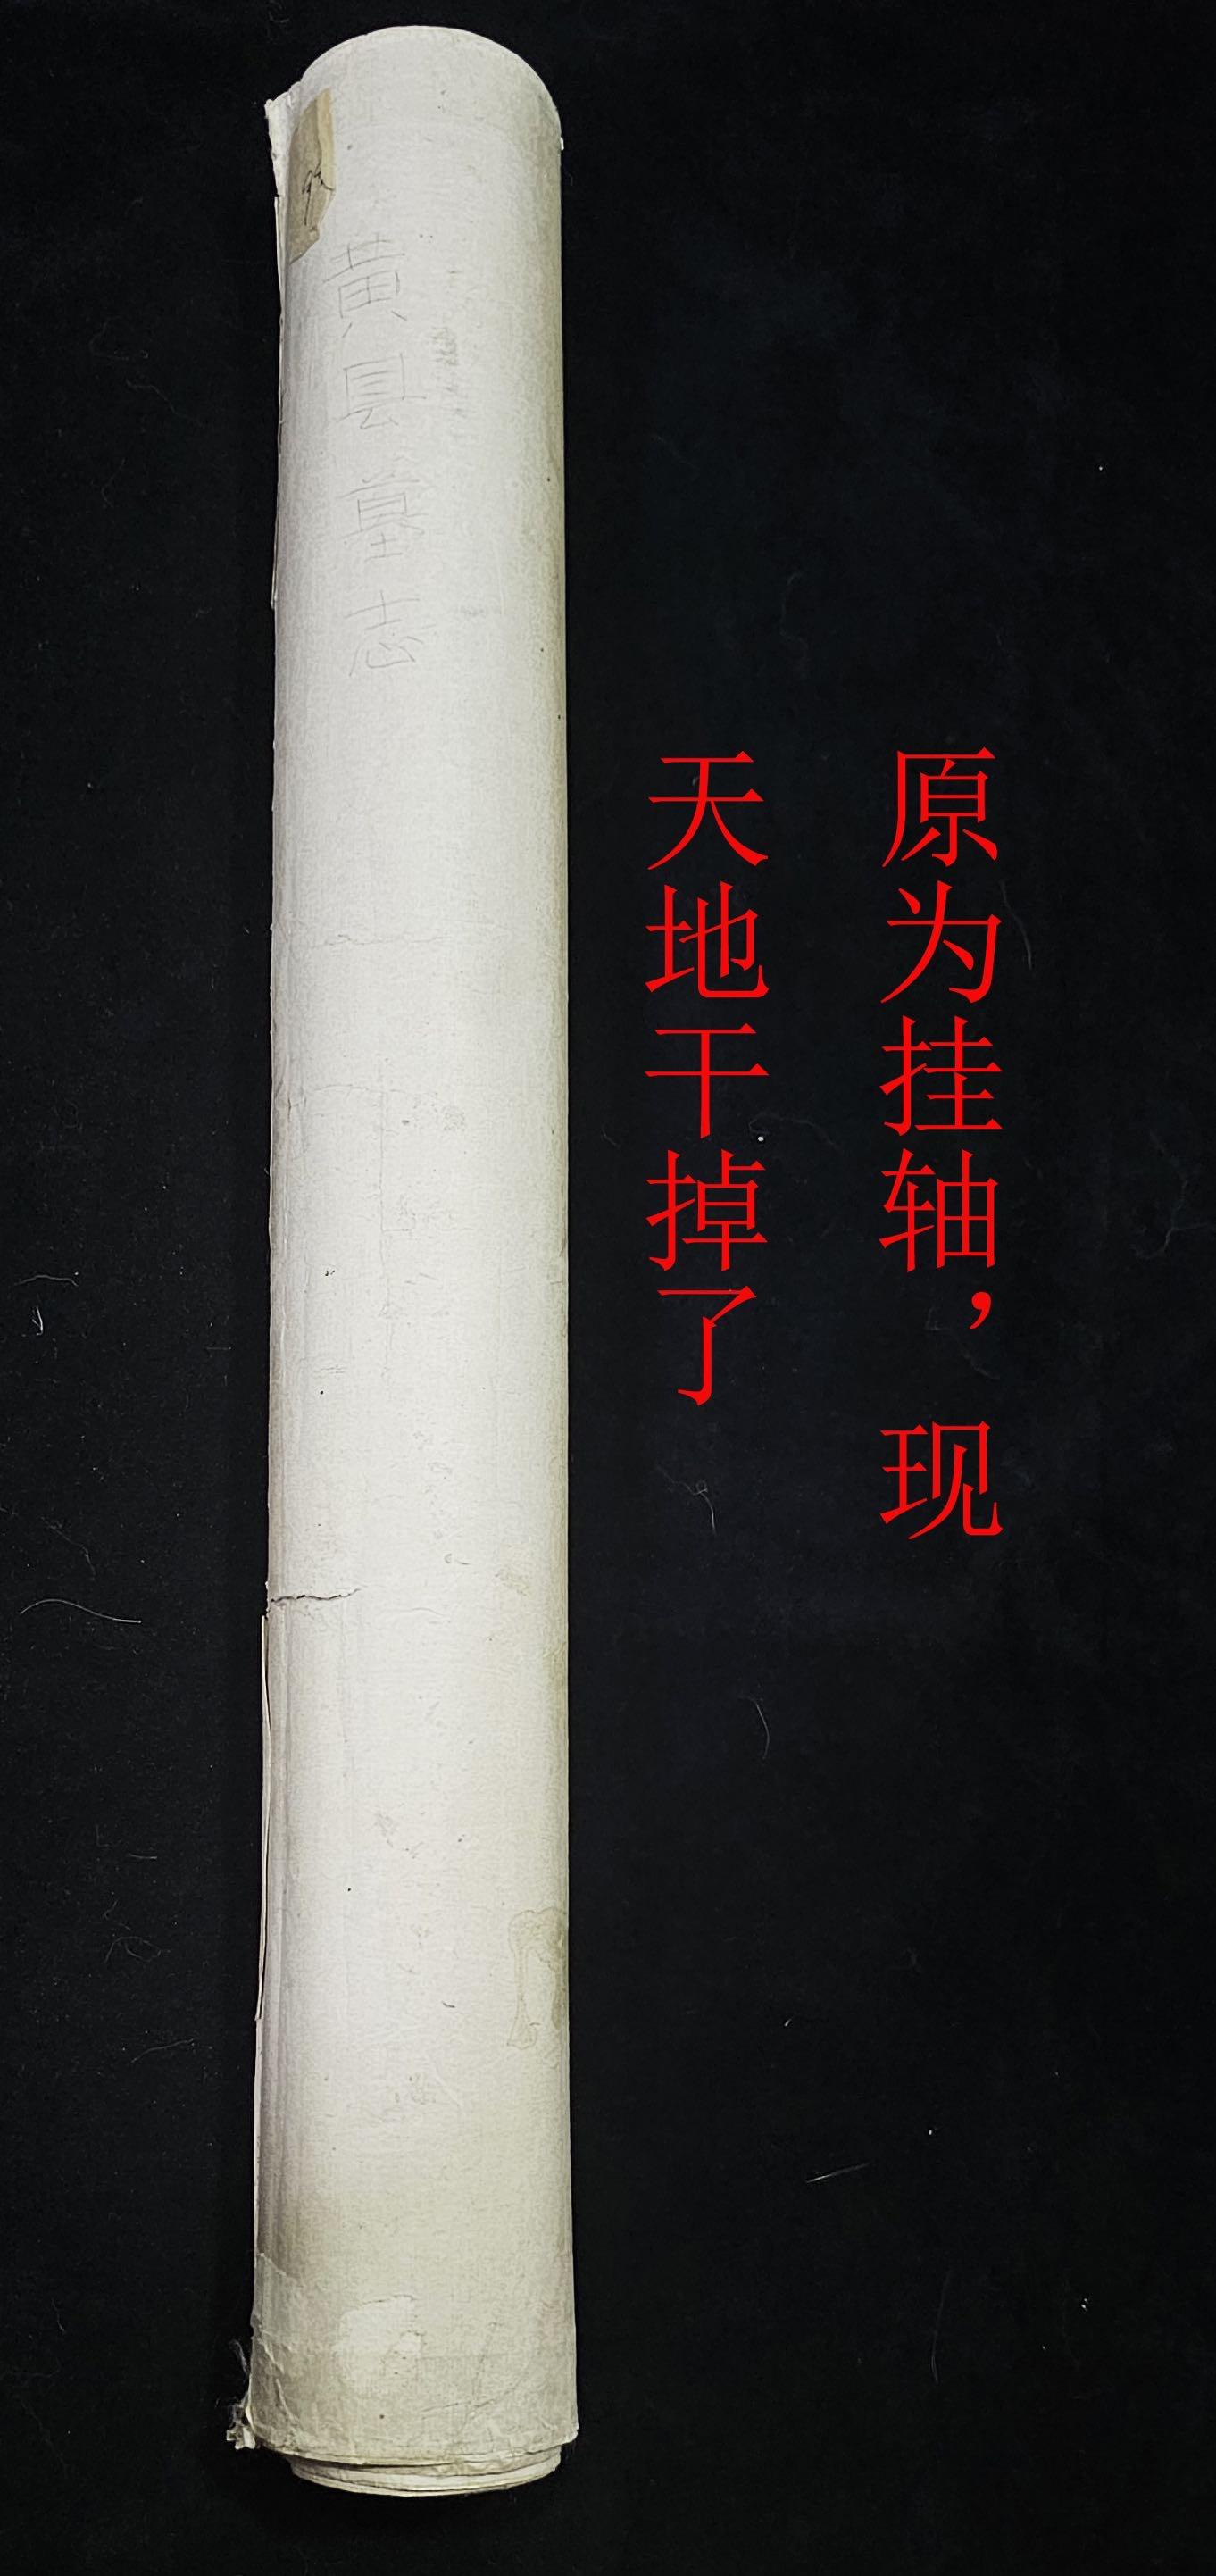 原为挂轴，现
天地干掉了
黄县墓志